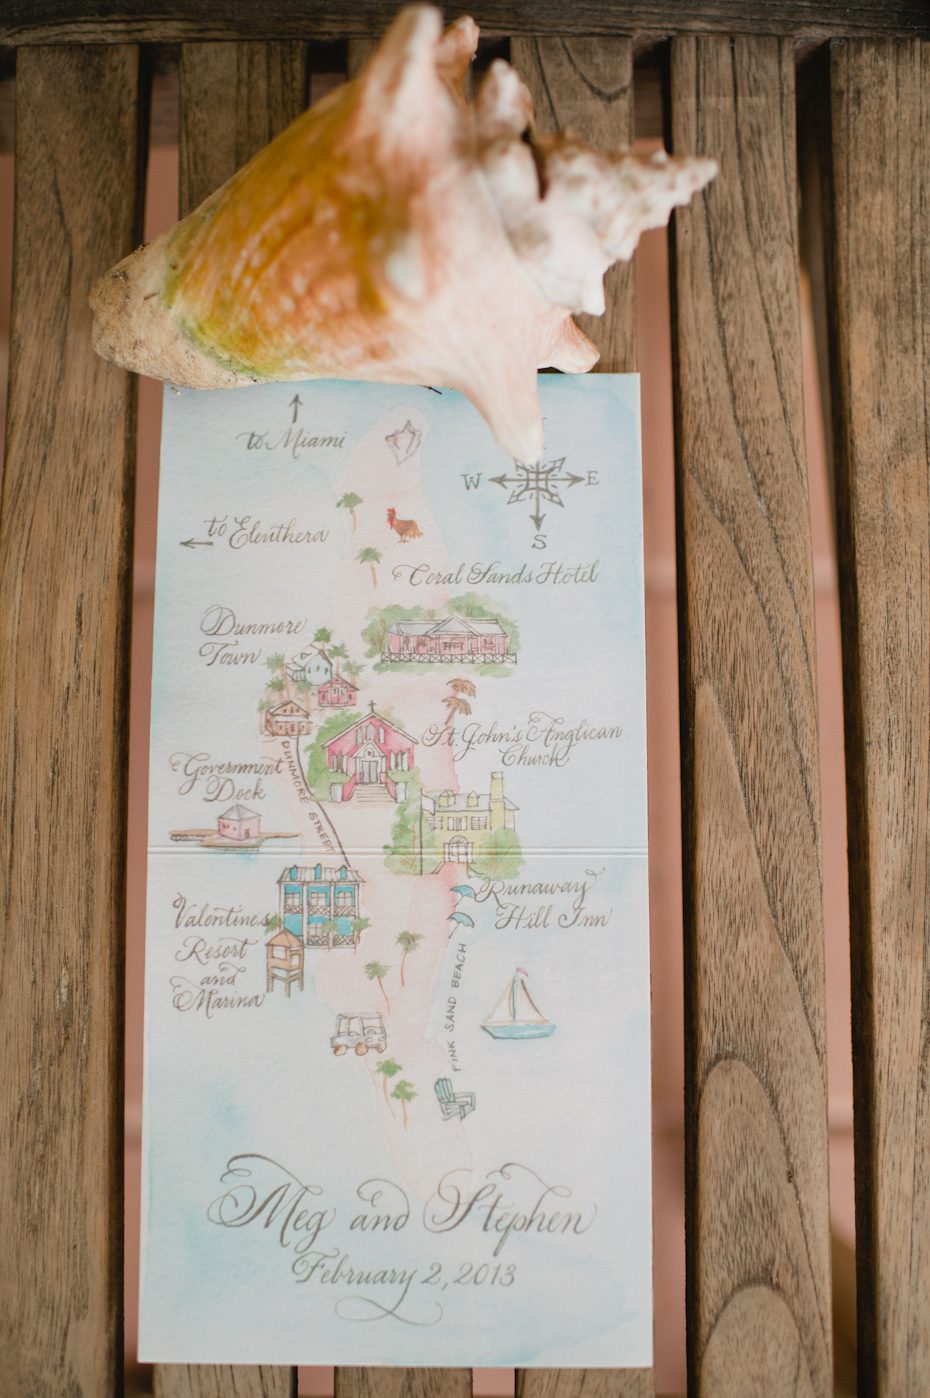 to Miami
W E
S
to Eleuthera
Coral Sands Hotel
Dunmore
Town
St. John's Anglican
Church
Government
Dock
DUNMORE STREET
Runaway
Hill Inn
Valentines
Resort
and
Marina
PINK SAND BEACH
Meg and Stephen
February 2, 2013